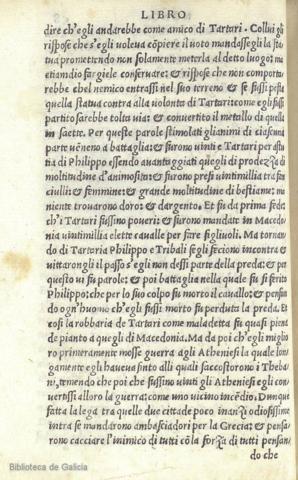 LIBRO
dire ch'egli andarebbe come amico di Tartari. Collui gli
rispose che s'egli voleva cōpiere il voto mandesse gli la sta
tua promettendo non solamente meterla al detto luogo: ma
etiamdio fargiele conservare: & rispose che non comporta
rebbe chel nemico entrassi nel suo terreno & se fussi posta
quella statua contra alla volonta di Tartari: come egli fussi
partito sarebbe tolta via: & convertito il metallo di quella
in saette. Per queste parole stimolati gli animi di ciascuna
parte vēneno a battaglia: & furono vinti e Tartari per astu
tia di Philippo essendo avantaggiati quegli di prodezza di
moltitudine d'animosita: & furono presi vintimillia tra fan
ciulli: & femmine: & grande moltitudine di bestiame: ma
niente trovarono doro: & dargento. Et fu da prima fede:
ch'i Tartari fussino poveri: & furono mandate in Macedo
nia vintimillia elette cavalle per fare figliuoli. Ma tornan
do di Tartaria Philippo e Tribali segli feciono incontra &
vittarongli il passo s'egli non dessi parte della preda: & per
questo vi fu parole: & poi battaglia nella quale fu si ferito
Philippo: che per lo suo colpo fu morto il cavallo: & pensan
do ogn'huomo ch'egli fussi morto fu perduta la preda. Et
cosi la robbaria de Tartari come maladetta fu quasi piena
de pianto a quegli di Macedonia. Ma da poi ch'egli miglio
ro primeramente mosse guerra agli Atheniesi la quale lon
gamente egli haveva finto alli quali saccostorono i Theba
ni, temendo che poi che fussino vinti gli Atheniesi egli con
vertissi alloro la guerra: come uno vicino incēdio. Dunque
fatta la lega tra quelle due cittade poco inanzi odiosissime
intra se mandarono ambasciadori per la Grecia: & pensa
rono cacciare l'inimico di tutti cō la forza di tutti pensan
do che
Biblioteca de Galicia